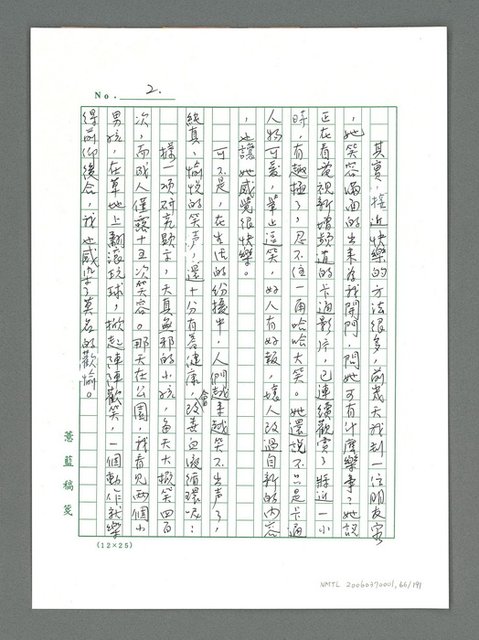 No. 2.
其實，接近快樂的方法很多，前幾天我到一位朋友家
，她笑容滿面的出來為我開門，問她可有什麼樂事？她說
正在看電視新增頻道的卡通影片，已連續觀賞了將近一小
時，有趣極了，忍不住一個哈哈大笑。她還說不只是卡通
人物可愛，舉止逗笑，好人有好報，壞人改過自新的內容
，也讓她感覺很快樂。
可不是，在生活的紛擾中，人們越來越笑不出聲了，
純真、愉悅的笑声，還十分有益健康，會改善血液循環呢！
據一項研究顯示，天真無邪的小孩，每天大概笑四百
次，而成人僅露十五次笑容。那天在公園，我看見兩個小
男孩，在草地上翻滾玩球，掀起陣陣歡笑，一個動作就樂
得前仰後合，我也感染了莫名的歡愉。
薔藍稿箋
(12×25)
NMTL 20060370001, 66/191